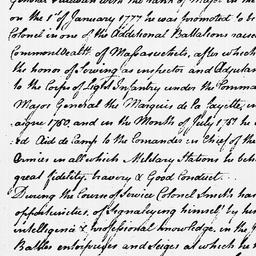 General Sullivan with the rank of Major in the
on the 1st of January 1777 he was promoted to be
Colonel in one of the Additional Battalions raised
Commonwealth of Massachusetts, after which
the honor of serving as inspector and Adjutant
to the Corps of Light Infantry under the Comma
Major General the Marquis de la Fayette, in
aigne 1780, and in the Month of July 1781 he
ed Aid de Camp to the Commander in Chief of the
Armies in all which Military Stations he beha
great fidelity, bravery & Good Conduct.
During the Course of Service Colonel Smith has
oppertunities, of Signalizing himself by his
intelligence & professional knowledge, in the
Battles enterprizes and Seiges at which he